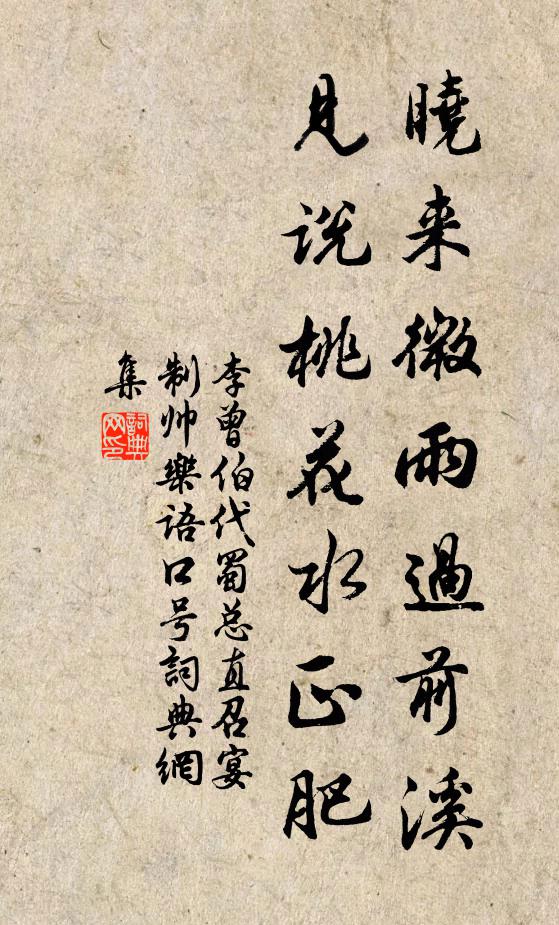 曉来微雨過前溪
見说桃花水正肥
李曾伯代蜀总直召宴
制帅樂语口号詞典網
集
詞典
网印